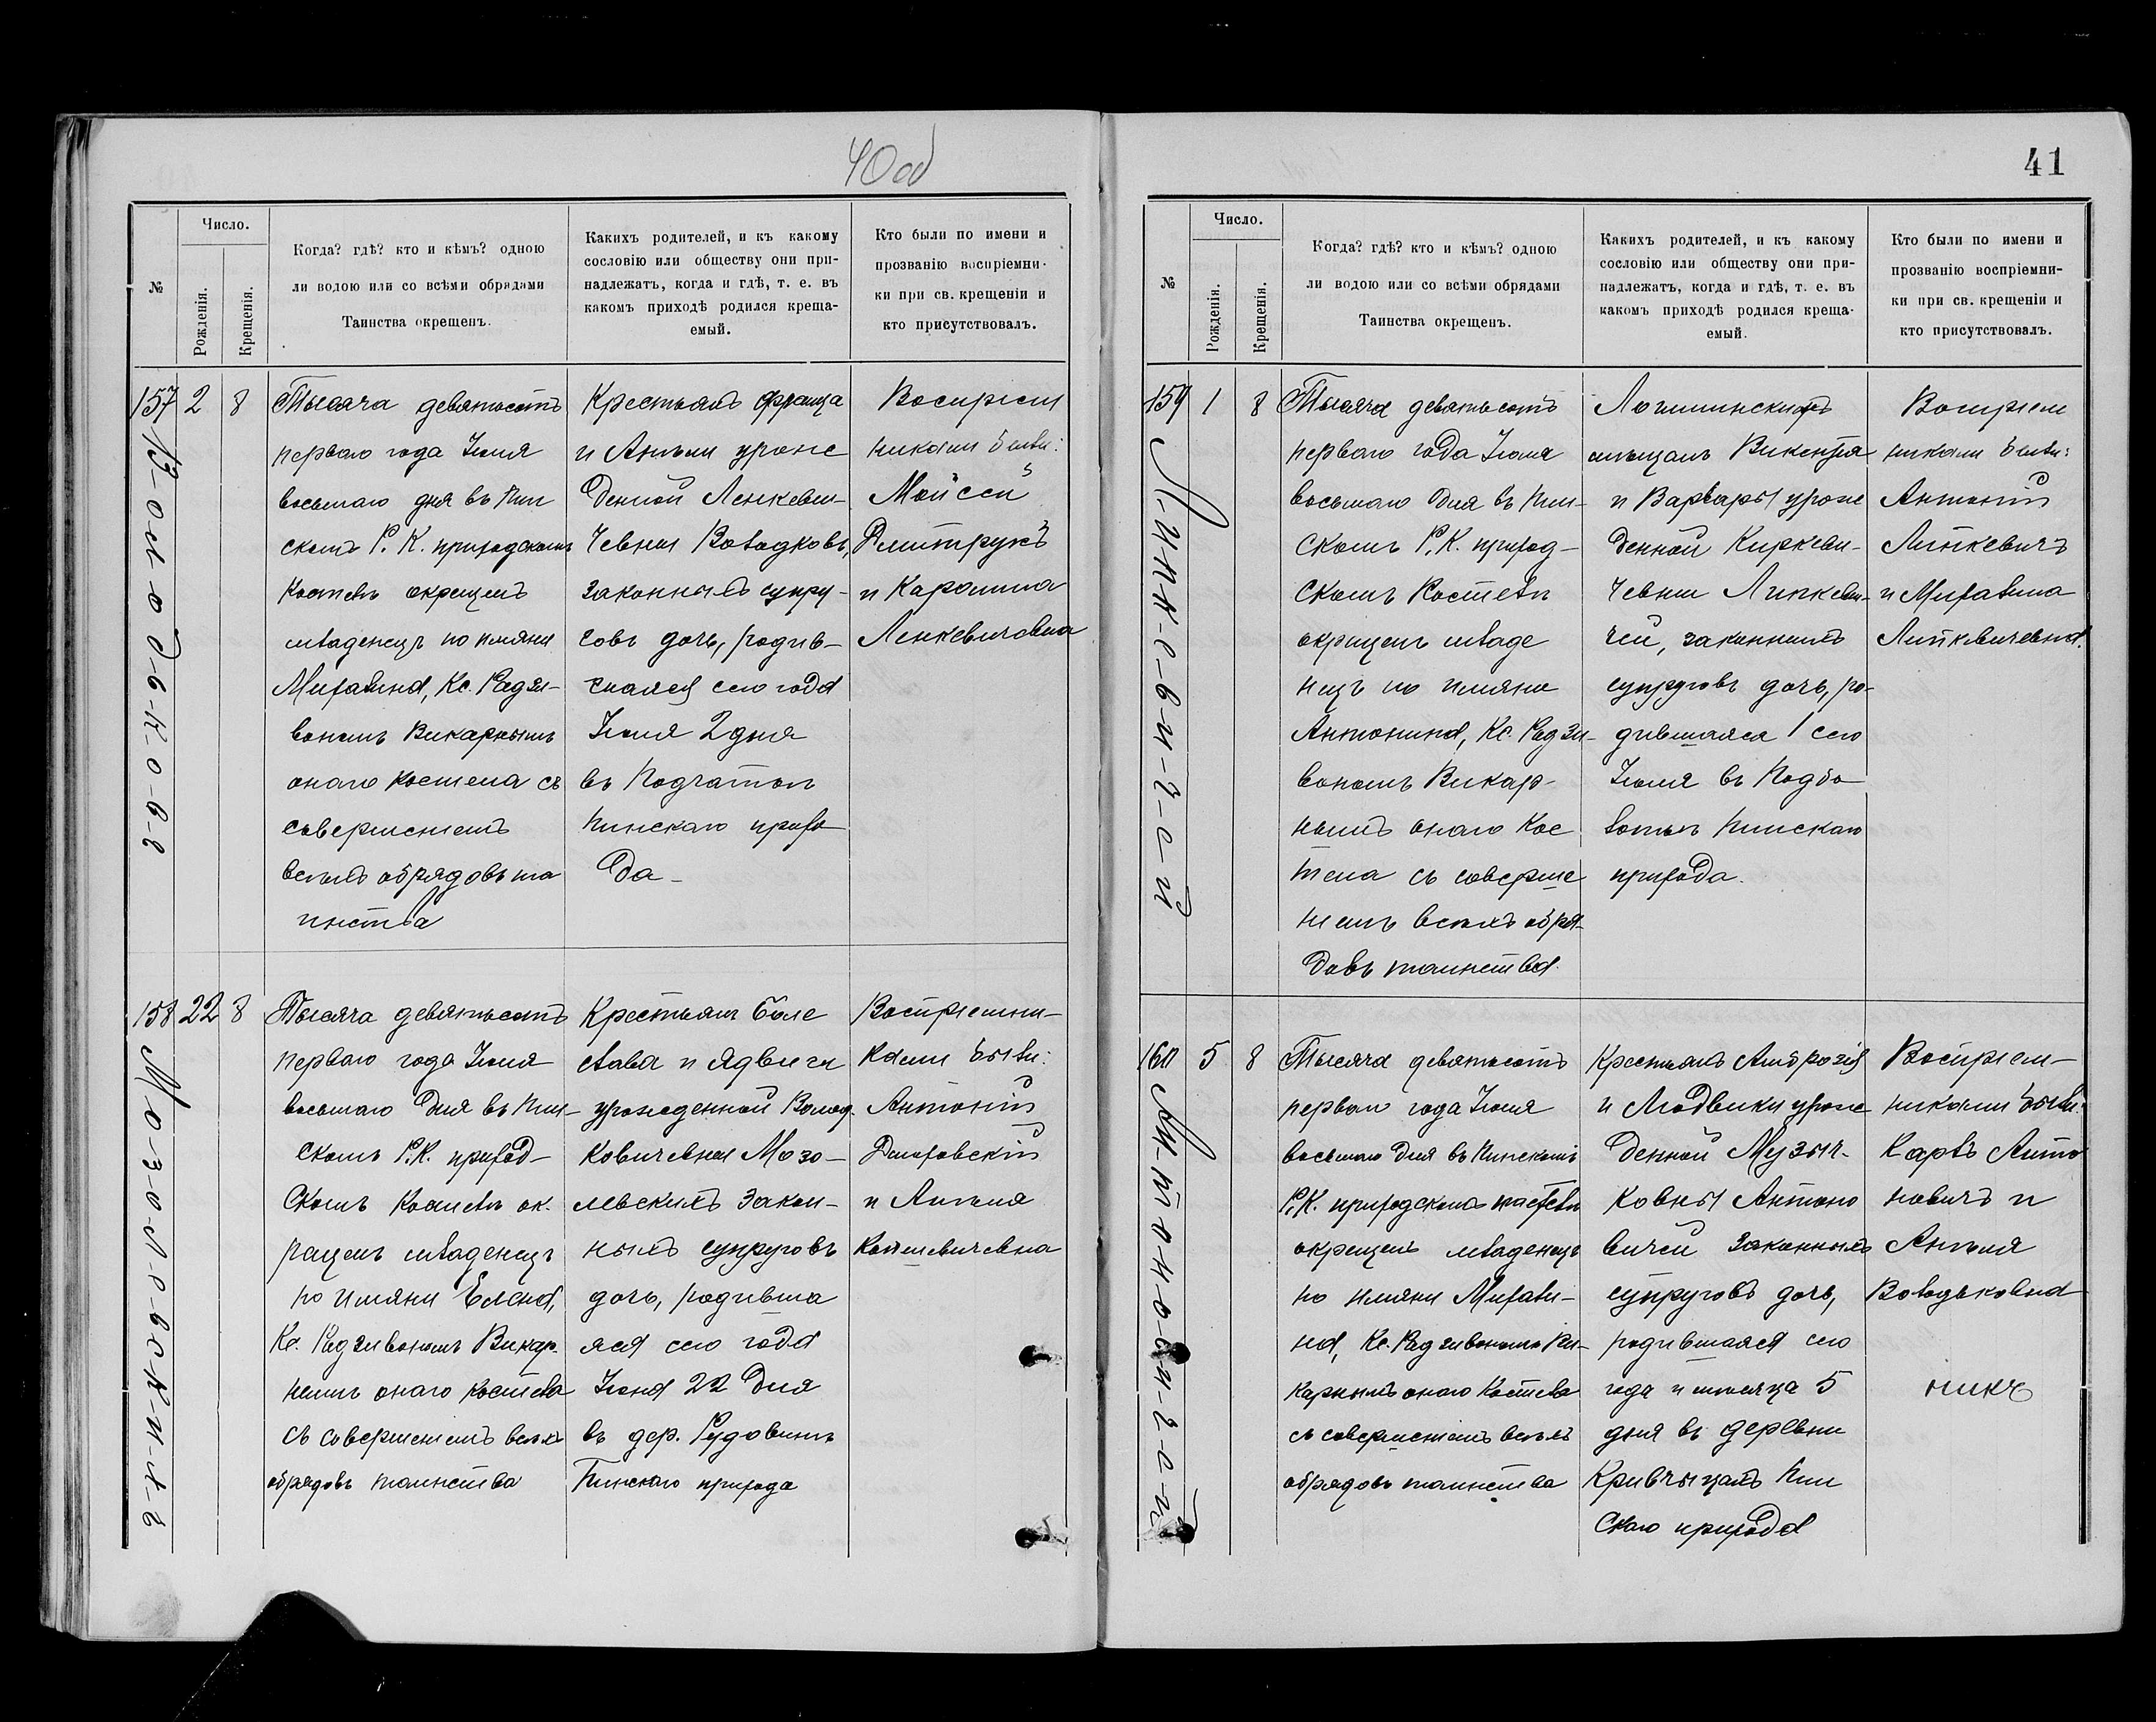 40об
41
№
Число.
Рожденія.
Крещенія.
Когда? гдѣ? кто и кѣмъ? одною
ли водою или со всѣми обрядами
Таинства окрещенъ.
Какихъ родителей, и къ какому
сословію или обществу они при-
надлежатъ, когда и гдѣ, т. е. въ
какомъ приходѣ родился креща-
емый.
Кто были по имени и
прозванію воспріемни-
ки при св. крещеніи и
кто присутствовалъ.
157 2 8
В-о-л-о-д-ь-к-о-в-ъ
Тысяча девятьсотъ
перваго года Іюля
восьмаго дня въ Пин
скомъ Р. К. приходскомъ
Костелѣ окрещенъ
младенецъ по имяни
Михалина, Кс. Радзи-
вономъ Викарнымъ
онаго Костела съ
совершеніемъ
всѣхъ обрядовъ та
инства
Крестьянъ Франца
и Анели урож
денной Ленкеви-
чевны Володковъ,
законныхъ супру-
говъ дочь, родив-
шаяся сего года
Іюля 2 дня
въ Подчатьѣ
Пинскаго прихо
да
Воспріем
никами были:
Мойсей
Дмитрукъ
и Каролина
Ленкевичовна
158 22 8
М-о-з-о-л-е-в-с-к-и-х-ъ
Тысяча девятьсотъ
перваго года Іюля
восьмаго дня въ Пин-
скомъ Р.К. приход-
скомъ Костелѣ ок-
рещенъ младенецъ
по имяни Елена,
Кс. Радзивономъ Викар-
нымъ онаго Костела
съ совершеніемъ всѣхъ
обрядовъ таинства
Крестьянъ Боле
слава и Ядвиги
урожденной Волод
ковичевны Мозо-
левскихъ закон-
ныхъ супруговъ
дочь, родивша
яся сего года
Іюня 22 дня
въ дер.
Пинскаго прихода
Воспріемни-
ками были:
Антоній
и Анеля
159 1 8
Л-и-п-к-е-в-и-ч-е-й
Тысяча девятьсотъ
перваго года Іюля
восьмаго дня въ Пин-
скомъ Р.К. приход-
скомъ Костелѣ
окрещенъ младе
нецъ по имяни
Антонина, Кс. Радзи-
вономъ Викар-
нымъ онаго Кос
тела съ соверше
ніемъ всѣхъ обря-
довъ таинства.
Логишинскихъ
мѣщанъ Викентія
и Варвары урож
денной Киркеви-
чевны Липкеви-
чей, законныхъ
супруговъ дочь, ро-
дившаяся 1 сего
Іюля въ Подбо
лотьѣ Пинскаго
прихода.
Воспріем
никами были:
Антоній
Липкевичъ
и Михалина
Липкевичевна.
160 5 8
А-н-т-о-н-о-в-и-ч-е-й
Тысяча девятьсотъ
перваго года Іюля
восьмаго дня въ Пинскомъ
Р.К. приходскомъ костелѣ
окрещенъ младенецъ
по имяни Михали-
на, Кс. Радзивономъ Ви-
карнымъ онаго Костела
съ совершеніемъ всѣхъ
обрядовъ таинства
Крестьянъ Амброзія
и Людвики урож
денной Музыч-
ковны Антоно
вичей законныхъ
супруговъ дочь,
родившаяся сего
года и мѣсяца 5
дня въ деревни
Кривчыцахъ Пин
скаго прихода
Воспріем-
никами были:
Карлъ Анто
новичъ и
Анеля
Володьковна